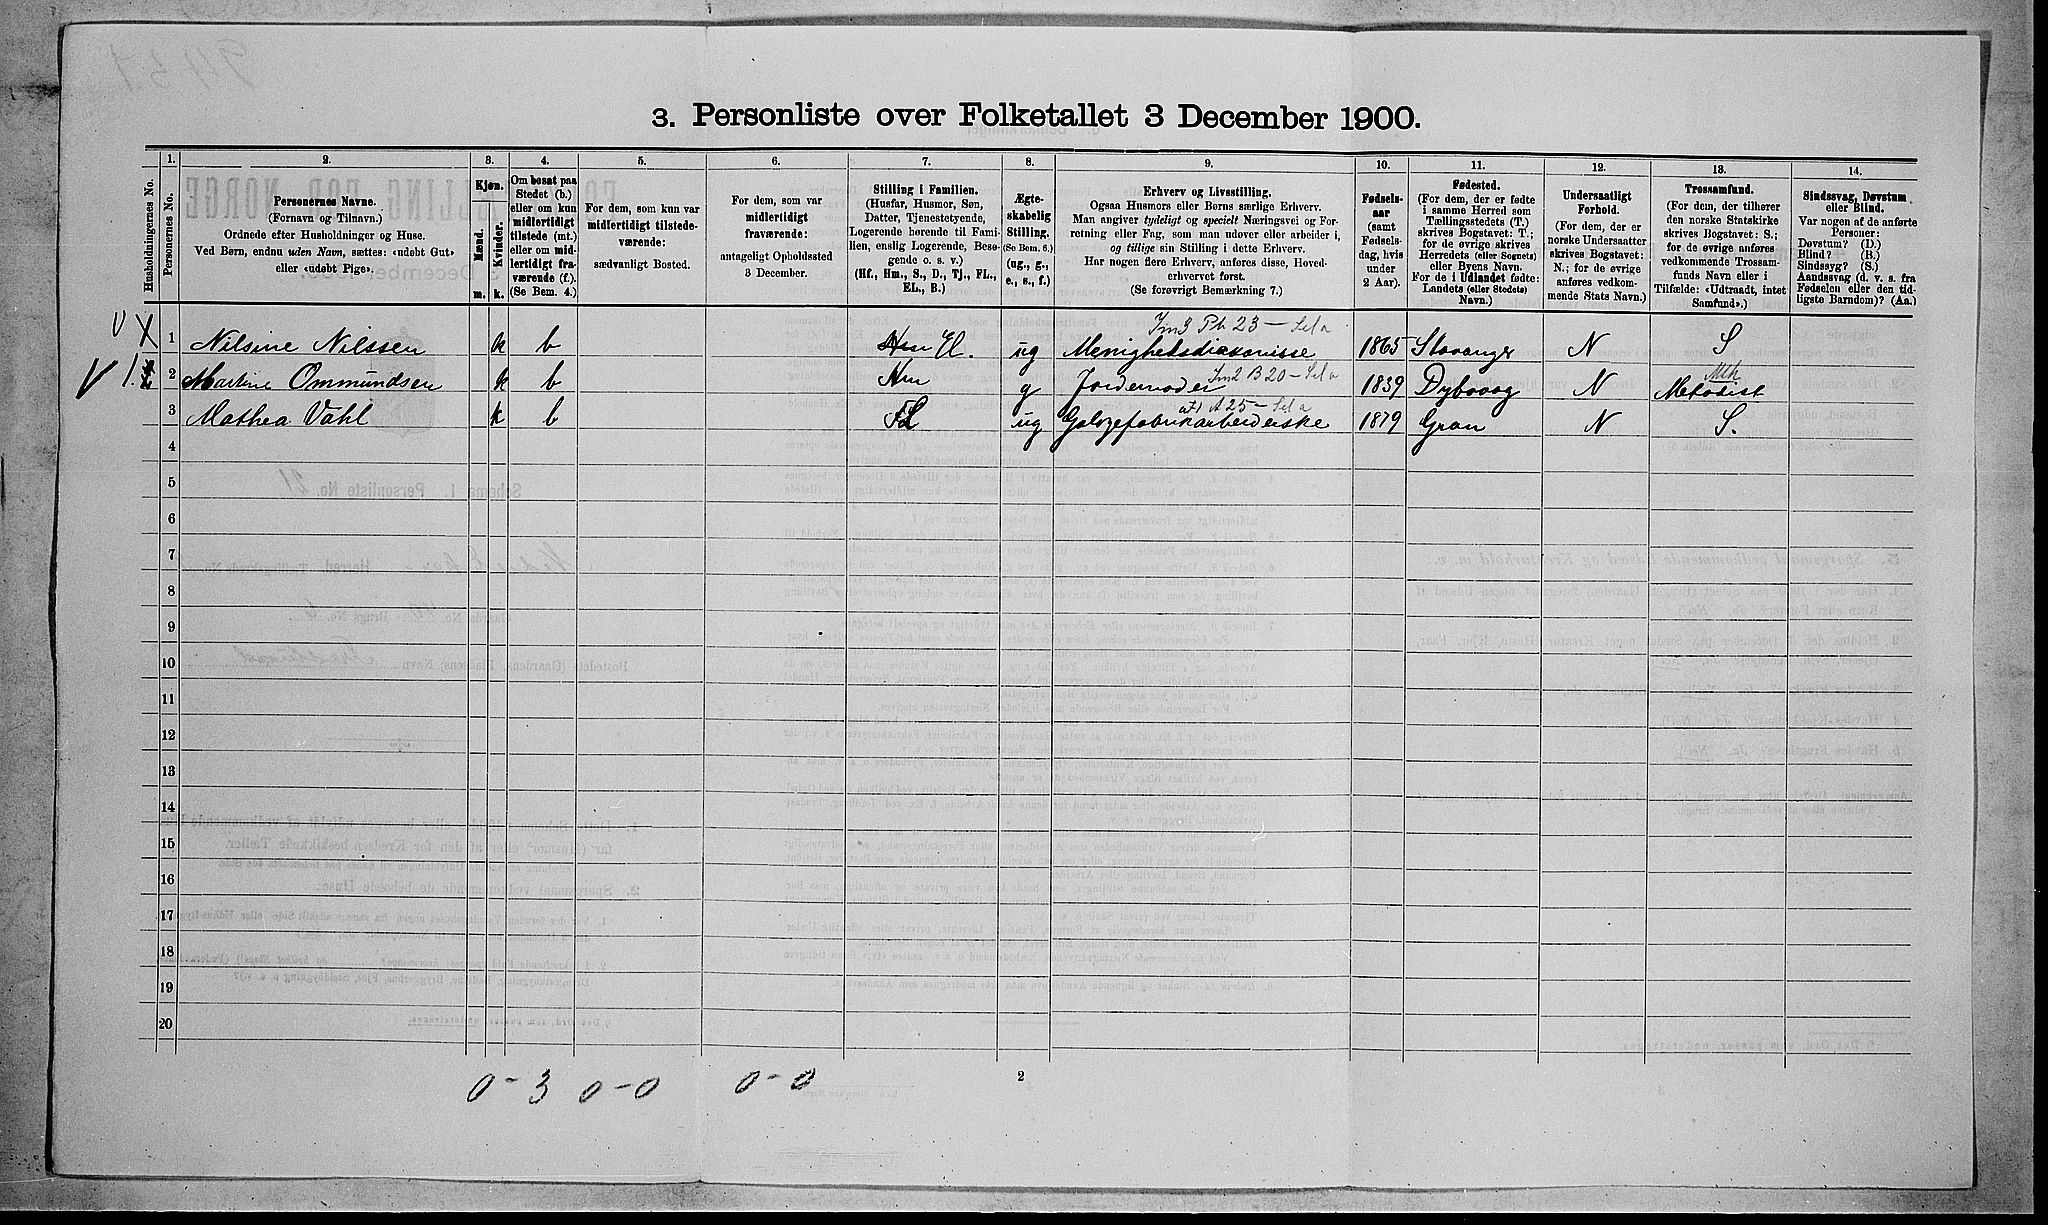 3. Personliste over Folketallet 3 December 1900.
Husholdningernes No.
1. Personernes No.
2. Personernes Navne.
(Fornavn og Tilnavn.)
Ordnede efter Husholdninger og Huse.
Ved Børn, endnu uden Navn, sættes: «udøbt Gut»
eller «udøbt Pige».
3. Kjøn.
Mænd. m.
Kvinder. k.
4. Om bosat paa
Stedet (b.)
eller om kun
midlertidigt
tilstede (mt.)
eller om mid-
lertidigt fra-
værende (f.)
(Se Bem. 4.)
5. For dem, som kun var
midlertidigt tilstede-
værende:
sædvanligt Bosted.
6. For dem, som var
midlertidigt
fraværende:
antageligt Opholdssted
3 December.
7. Stilling i Familien.
(Husfar, Husmor, Søn,
Datter, Tjenestetyende,
Logerende hørende til Fami-
lien, enslig Logerende, Besø-
gende o. s. v.)
(Hf., Hm., S., D., Tj., FL.,
EL., B.)
8. Ægte-
skabelig
Stilling.
(Se Bem. 6.)
(ug., g.,
e., s., f.)
9. Erhverv og Livsstilling.
Ogsaa Husmors eller Børns særlige Erhverv.
Man angiver tydeligt og specielt Næringsvei og For-
retning eller Fag, som man udøver eller arbeider i,
og tillige sin Stilling i dette Erhverv.
Har nogen flere Erhverv, anføres disse, Hoved-
erhvervet først.
(Se forøvrigt Bemærkning 7.)
10. Fødsels-
aar
(samt
Fødsels-
dag, hvis
under
2 Aar).
11. Fødested.
(For dem, der er fødte
i samme Herred som
Tællingsstedets (T.)
skrives Bogstavet: T.;
for de øvrige skrives
Herredets (eller Sognets)
eller Byens Navn.
For de i Udlandet fødte:
Landets (eller Stedets)
Navn.)
12. Undersaatligt
Forhold.
(For dem, der er
norske Undersaatter
skrives Bogstavet:
N.; for de øvrige
anføres vedkom-
mende Stats Navn.)
13. Trossamfund.
(For dem, der tilhører
den norske Statskirke
skrives Bogstavet: S.;
for de øvrige anføres
vedkommende Trossam-
funds Navn eller i
Tilfælde: «Udtraadt, intet
Samfund».)
14. Sindssvag, Døvstum
eller Blind.
Var nogen af de anførte
Personer:
Døvstum? (D.)
Blind? (B.)
Sindssyg? (S.)
Aandssvag (d. v. s. fra
Fødselen eller den tid-
ligste Barndom)? (Aa.)
1 Nilsine Nilssen k b El. ug Menighedsdiakonisse 1865 Stavanger N S
2 Martine Ommundsen k b Hm g Jordemoder 1839 Dybvaag N Metodist
3 Mathea Vahl k b FL ug Galogefabrikarbeiderske 1879 Gran N S.
4
5
6
7
8
9
10
11
12
13
14
15
16
17
18
19
20
0-3 0-0 0-0
2